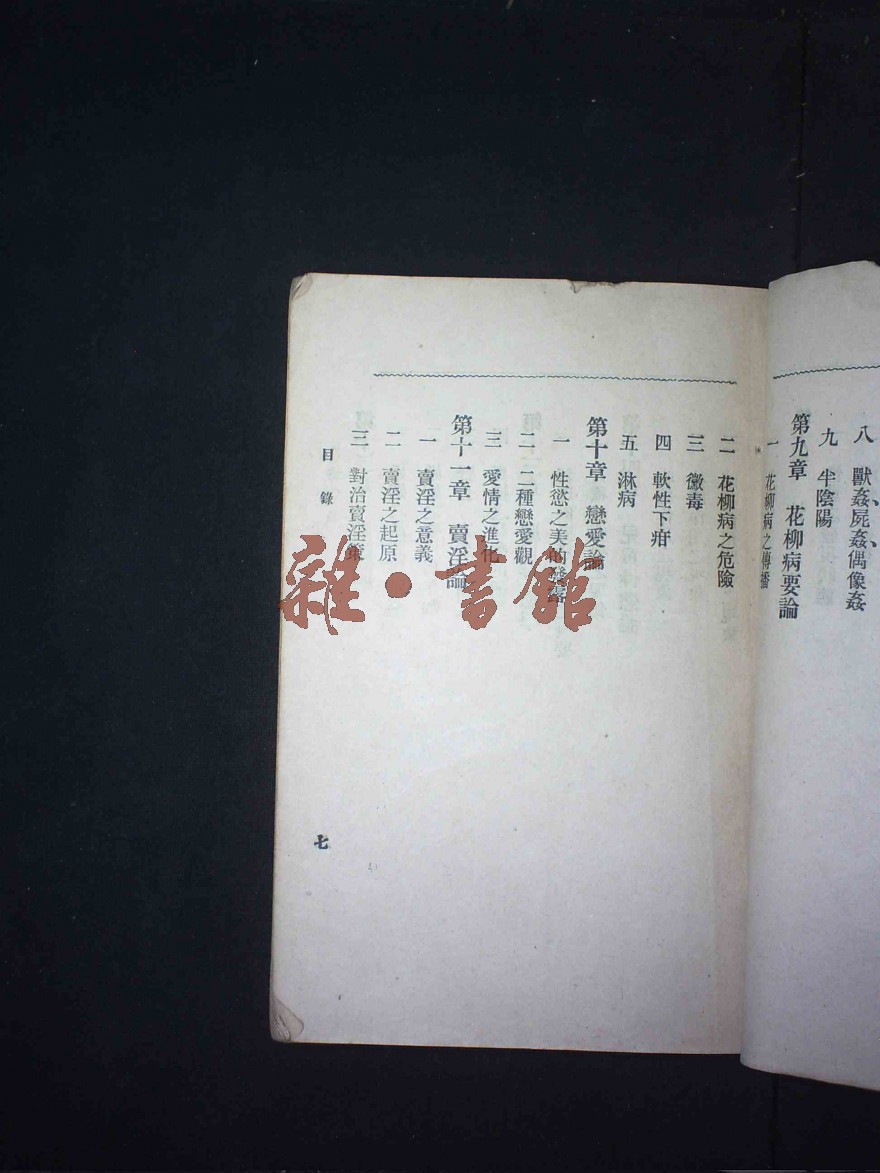 八　獸姦屍姦偶像姦
九　半陰陽
第九章　花柳病要論
一　花柳病之傳播
二　花柳病之危險
三　黴毒
四　軟性下疳
五　淋病
第十章　戀愛論
一　性慾之美的發露
二　二種戀愛觀
三　愛情之進化
第十一章　賣淫論
一　賣淫之意義
二　賣淫之起原
三　對治賣淫策
目錄
七
雜·書館